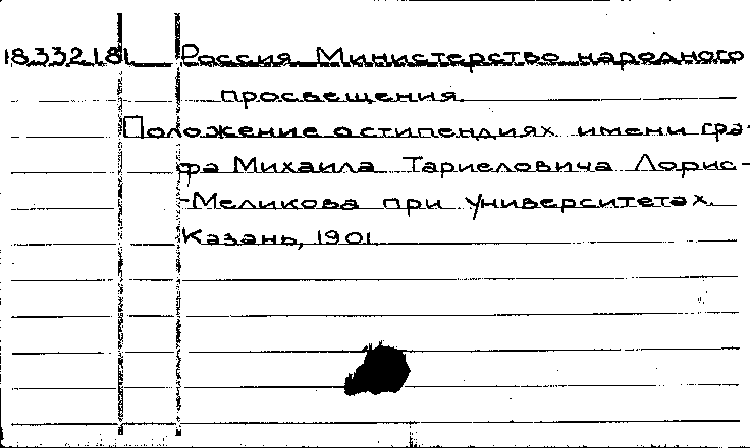 18.332.181 Россия Министерство народного
просвещения.
Положение о стипендиях имени гра-
фа Михаила Тариеловича Лорис-
-Меликова при университетах.
Казань, 1901.